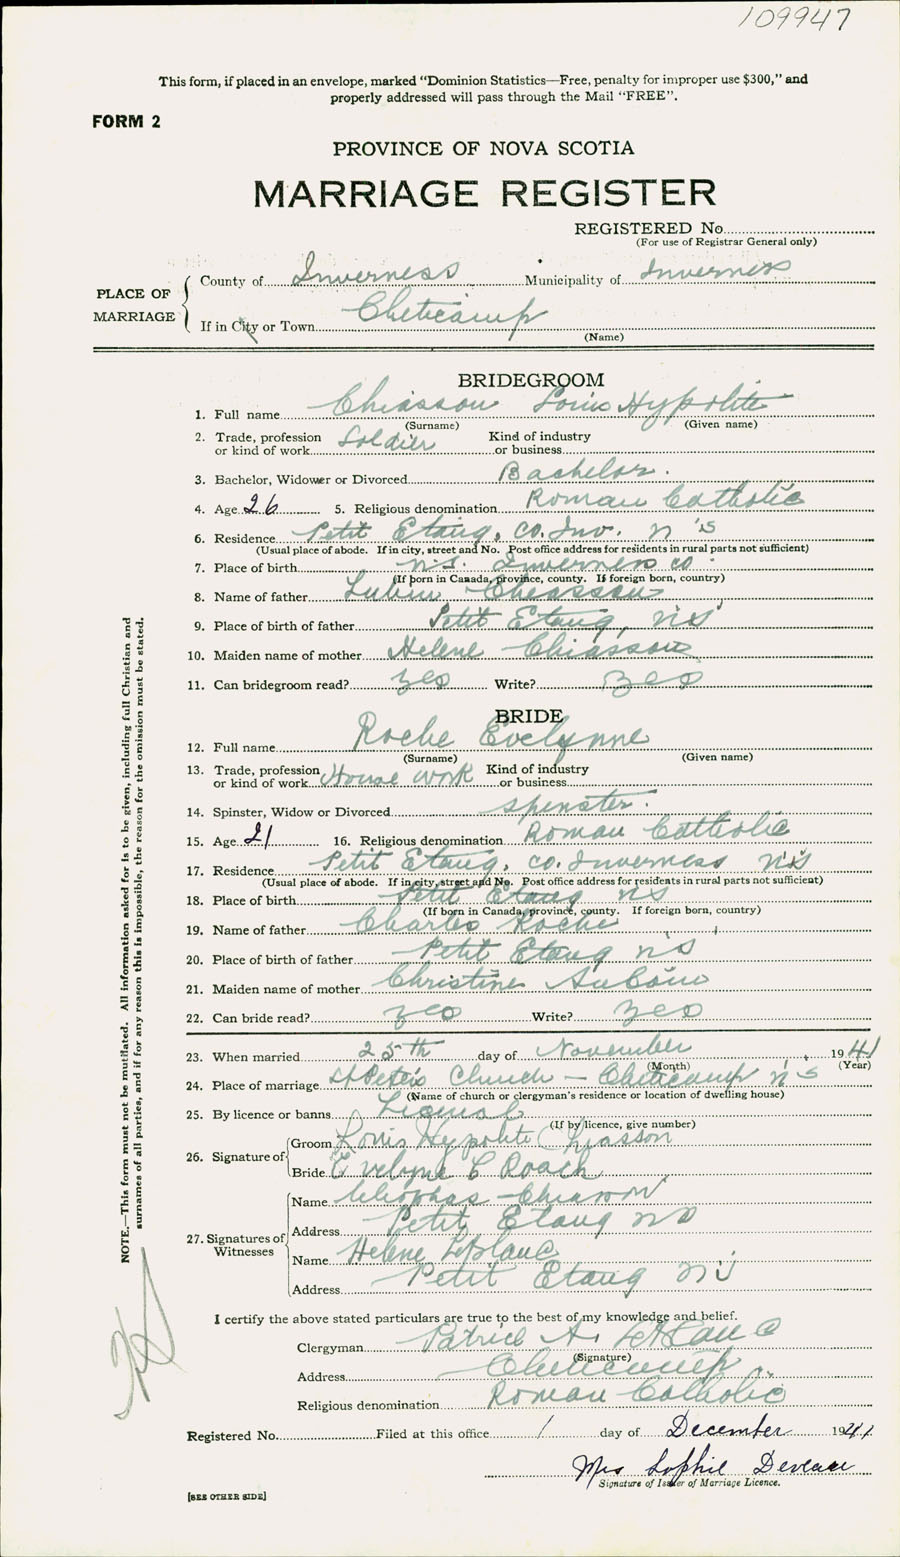 109947
This form, if placed in an envelope, marked "Dominion Statistics—Free, penalty for improper use $300," and
properly addressed will pass through the Mail "FREE".
FORM 2
PROVINCE OF NOVA SCOTIA
MARRIAGE REGISTER
REGISTERED No.
(For use of Registrar General only)
PLACE OF MARRIAGE
County of Inverness Municipality of Inverness
If in City or Town Cheticamp
(Name)
BRIDEGROOM
1. Full name Chiasson Louis Hypolite
(Surname) (Given name)
2. Trade, profession or kind of work Soldier Kind of industry or business
3. Bachelor, Widower or Divorced Bachelor.
4. Age 26 5. Religious denomination Roman Catholic
6. Residence Petit Etang, co. Inv. n's
(Usual place of abode. If in city, street and No. Post office address for residents in rural parts not sufficient)
7. Place of birth n.s. Inverness co.
(If born in Canada, province, county. If foreign born, country)
8. Name of father Lubin Chiasson
9. Place of birth of father Petit Etang, n's
10. Maiden name of mother Helene Chiasson
11. Can bridegroom read? yes Write? yes
BRIDE
12. Full name Roche Evelynne
(Surname) (Given name)
13. Trade, profession or kind of work House work Kind of industry or business
14. Spinster, Widow or Divorced spinster.
15. Age 21 16. Religious denomination Roman Catholic
17. Residence Petit Etang, co. Inverness n's
(Usual place of abode. If in city, street and No. Post office address for residents in rural parts not sufficient)
18. Place of birth Petit Etang ns
(If born in Canada, province, county. If foreign born, country)
19. Name of father Charles Roche
20. Place of birth of father Petit Etang n's
21. Maiden name of mother Christine AuCoin
22. Can bride read? yes Write? yes
23. When married 25th day of November 1941
(Month) (Year)
24. Place of marriage St Peter's Church — Cheticamp n's
(Name of church or clergyman's residence or location of dwelling house)
25. By licence or banns
(If by licence, give number)
26. Signature of
Groom Louis Hypolite Chiasson
Bride Evelyne C Roach
27. Signatures of Witnesses
Name Cleophas Chiasson
Address Petit Etang ns
Name Helene LeBlanc
Address Petit Etang n's
I certify the above stated particulars are true to the best of my knowledge and belief.
Clergyman Patrice A. LeBlanc
(Signature)
Address Cheticamp
Religious denomination Roman Catholic
Registered No. Filed at this office 1 day of December 1941
Mrs Sophie Deveau
Signature of Issuer of Marriage Licence.
[SEE OTHER SIDE]
NOTE.—This form must not be mutilated. All information asked for is to be given, including full Christian and
surnames of all parties, and if for any reason this is impossible, the reason for the omission must be stated.